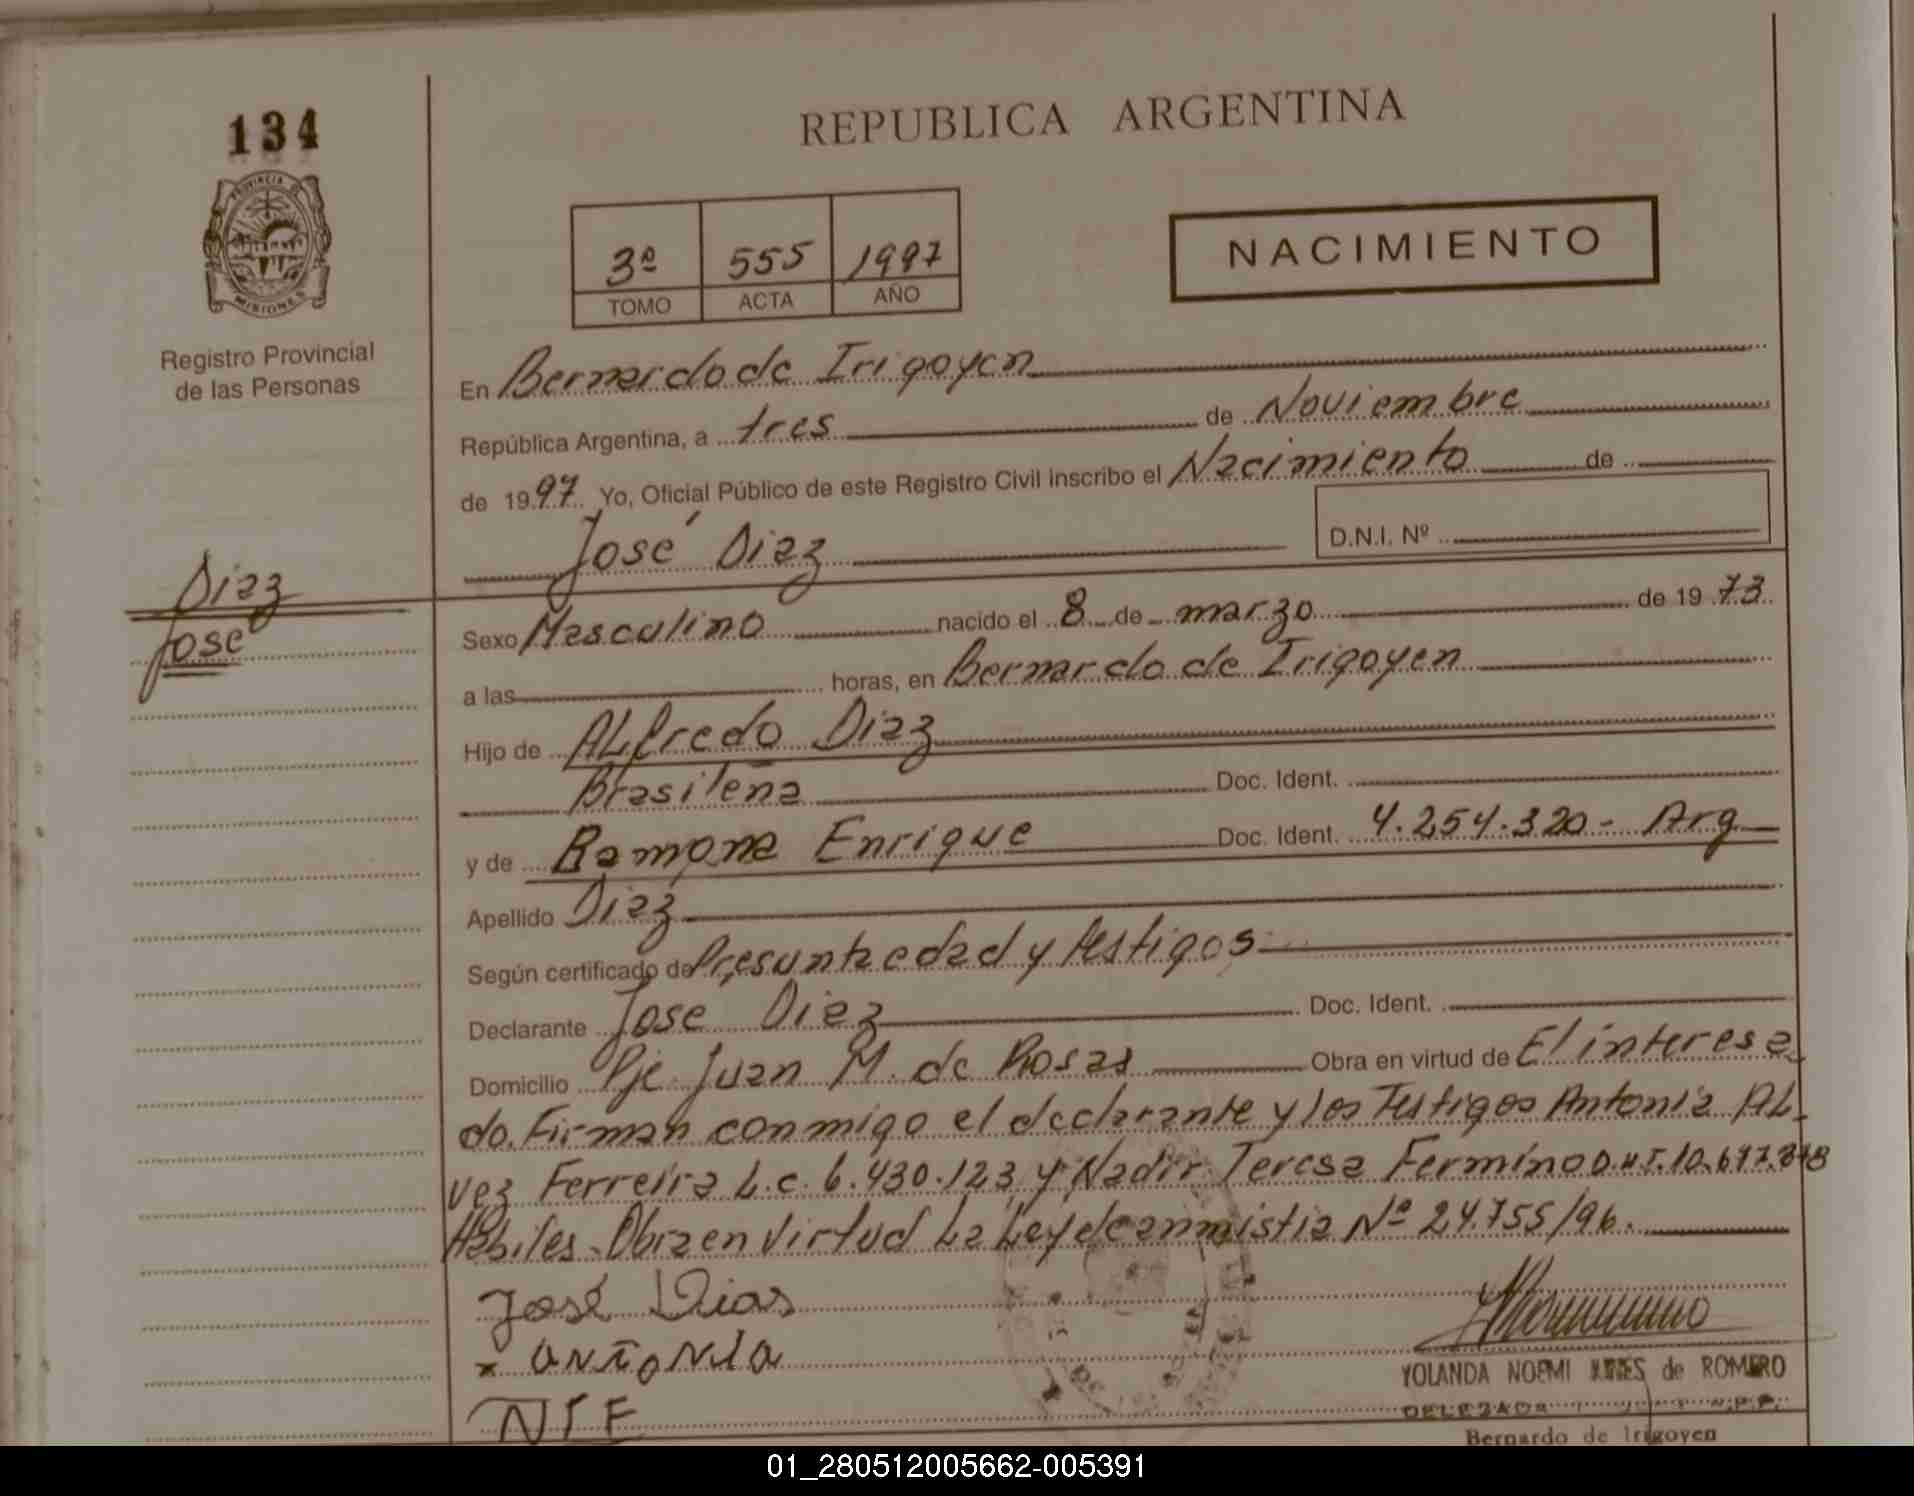 134
REPUBLICA ARGENTINA
PROVINCIA DE
MISIONES
Registro Provincial
de las Personas
3ª 555 1997
TOMO ACTA AÑO
NACIMIENTO
En Bernardo de Irigoyen
República Argentina, a tres de Noviembre
de 1997 Yo, Oficial Público de este Registro Civil inscribo el Nacimiento de
José Diaz
D.N.I. Nº
Diaz
José
Sexo Masculino nacido el 8 de marzo de 1973
a las horas, en Bernardo de Irigoyen
Hijo de ALfredo Diaz
Brasileña Doc. Ident.
y de Ramona Enrique Doc. Ident. 4.254.320- Arg
Apellido Diaz
Según certificado de Presunta edad y testigos
Declarante Jose Diaz Doc. Ident.
Domicilio Pje Juan M. de Rosas Obra en virtud de El interesa
do. Firman conmigo el declarante y los Testigos Antonia AL-
vez Ferreira L.c. 6.430.123 y Nadir Teresa Fermino
Habiles. Obra en virtud La Ley de anmistia Nº 24.755/96.
José Dias
x antonia
NTF
YOLANDA NOEMI de ROMERO
DELEGADA
Bernardo de Irigoyen
01_280512005662-005391